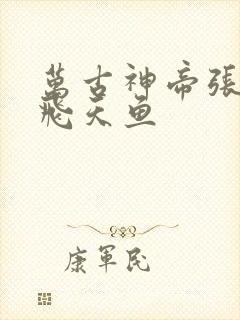 萬古神帝張
飛天鱼
康軍民